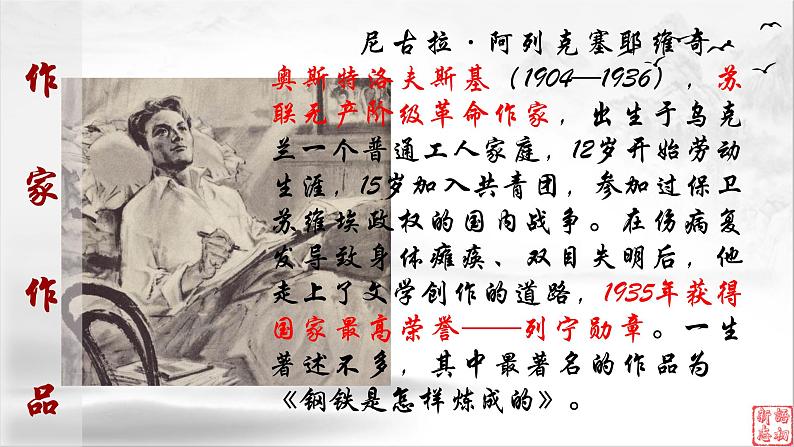 作家作品
尼古拉·阿列克塞耶维奇
奥斯特洛夫斯基（1904—1936），苏
联无产阶级革命作家，出生于乌克
兰一个普通工人家庭，12岁开始劳动
生涯，15岁加入共青团，参加过保卫
苏维埃政权的国内战争。在伤病复
发导致身体瘫痪、双目失明后，他
走上了文学创作的道路，1935年获得
国家最高荣誉——列宁勋章。一生
著述不多，其中最著名的作品为
《钢铁是怎样炼成的》。
语初
新志